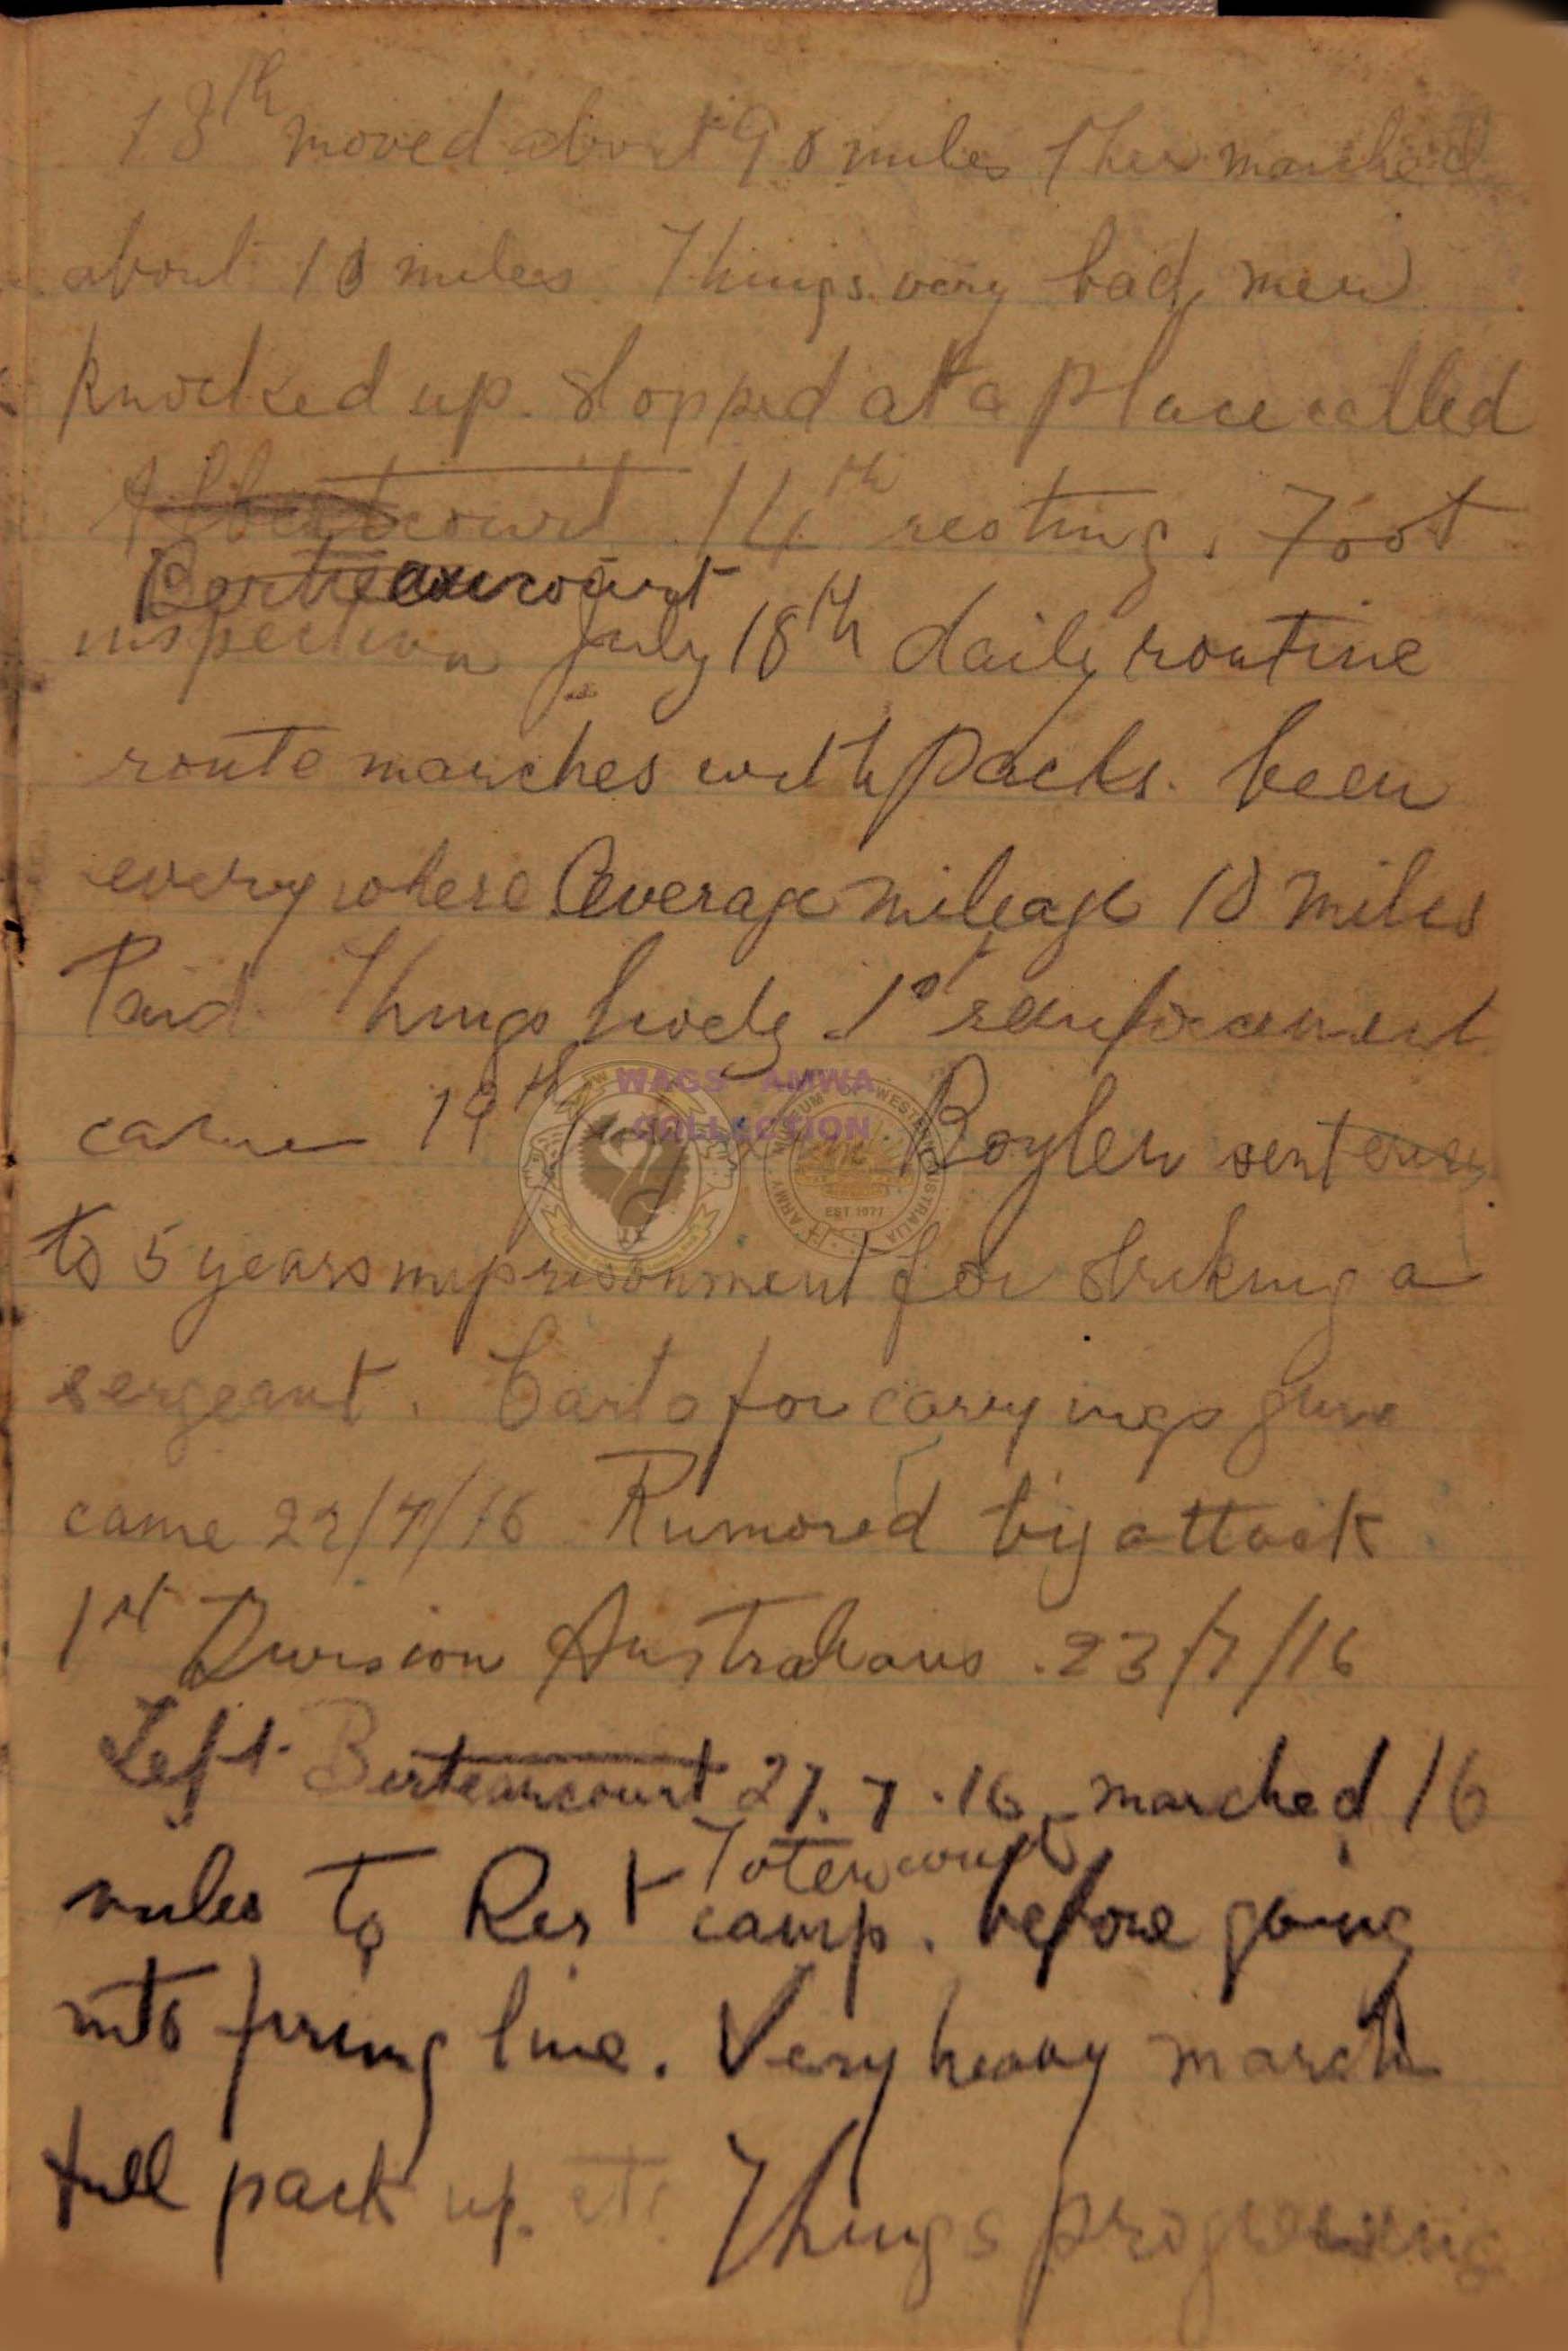 13th moved about 90 miles then marched
about 10 miles. Things very bad, men
knocked up. Stopped at a place called
Albertcourt 14th resting. Foot
Berteaucourt
inspection July 18th daily routine
route marches with packs. been
everywhere average mileage 10 miles
Paid. Things lively 1st reinforcement
came 19th Boylen sentence
WAGS AMWA
COLLECTION
EST 1977
to 5 years imprisonment for striking a
sergeant. Carts for carryings guns
came 22/7/16 Rumored big attack
1st Division Australians. 23/7/16
Left Berteaucourt 27.7.16 marched 16
Totencourt
miles to Rest camp. before going
into firing line. Very heavy march
full pack up. etc. Things progressing